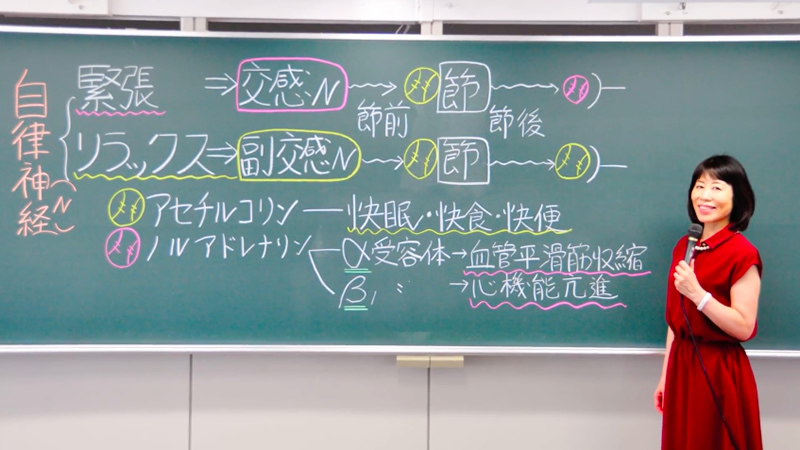 自律神経(N)
緊張 ⇒ 交感N → 節 → 
節前 節後
リラックス ⇒ 副交感N → 節 → 
アセチルコリン ― 快眠・快食・快便
ノルアドレナリン α受容体→血管平滑筋収縮
β₁ 〃 →心機能亢進